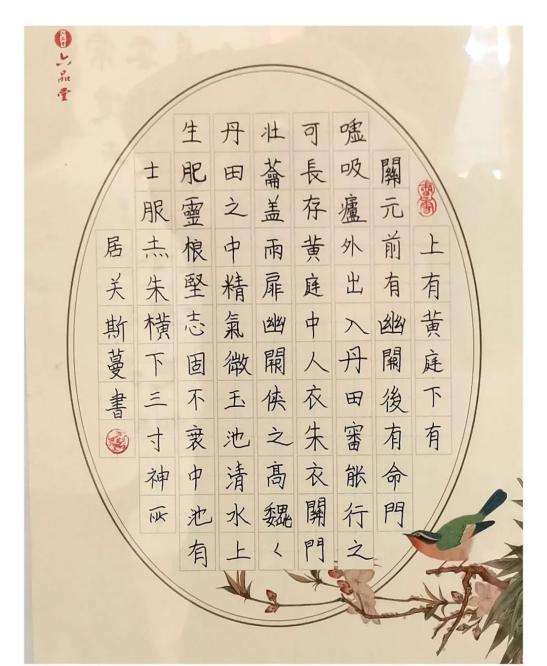 六品堂
上有黄庭下有
關元前有幽闕後有命門
噓吸廬外出入丹田審能行之
可長存黄庭中人衣朱衣關門
壯蘥盖兩扉幽闕俠之高魏く
丹田之中精氣微玉池清水上
生肥靈根堅志固不衰中池有
士服赤朱横下三寸神所
居关斯蔓書